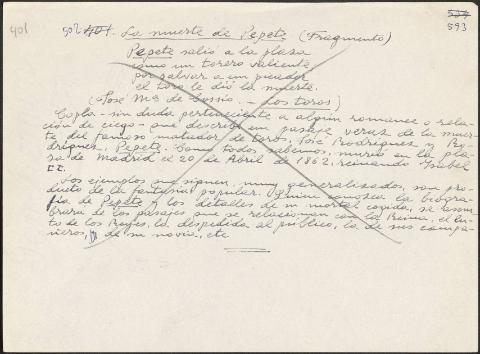 401
502 401. La muerte de Pepete (Fragmento)
533
593
Pepete salió a la plaza
como un torero valiente
por salvar a un picador
el toro le dió la muerte.
(José Mª de Cossío. - Los toros)
Copla - sin duda perteneciente a algún romance o rela-
ción de ciego que describe en pasaje veraz de la muer-
te del famoso matador de toros, José Rodríguez y Ro-
dríguez, Pepete. Como todos sabemos, murió en la pla-
za de Madrid el 20 de Abril de 1862, reinando Isabel
II.
Los ejemplos que siguen, muy generalizados, son pro-
ducto de la fantasía popular. Quien conozca la biogra-
fía de Pepete y los detalles de su mortal cogida, se asom-
brará de los pasajes que se relacionan con la Reina, el lu-
to de los Reyes, la despedida al público, la de sus compa-
ñeros, de su novia, etc